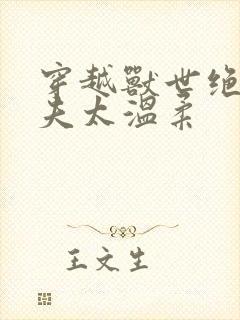 穿越獸世绝
夫太温柔
王文生